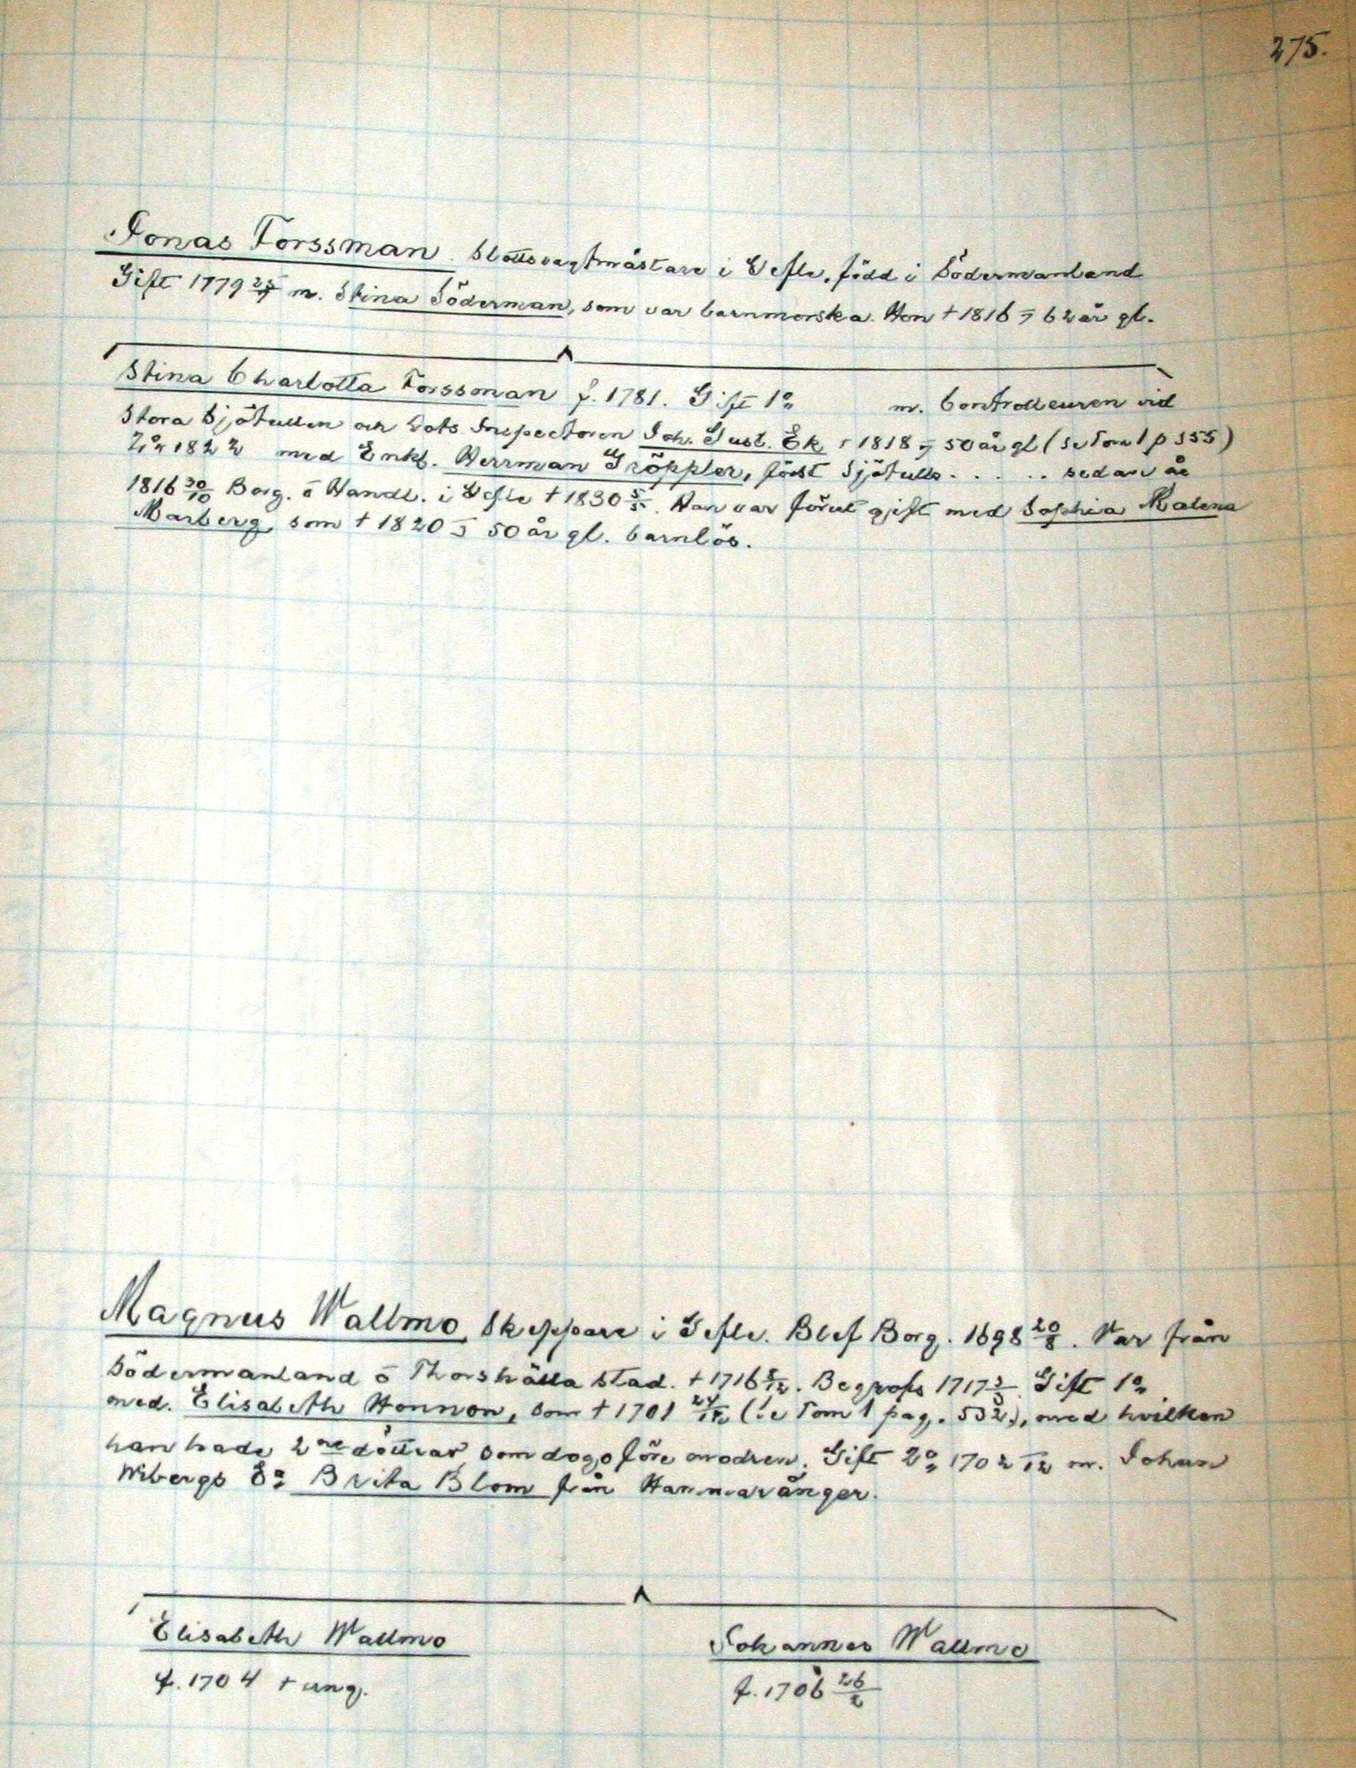 275.
Jonas Forssman. Slottsvagtmästare i Gefle, född i Södermanland
Gift 1779 25/7 m. Stina Söderman, som var barnmorska. Hon † 1816 62 år gl.
Stina Charlotta Forssman f. 1781. Gift 1o m. Controlleuren vid
Stora Sjötullen och Lots Inspectoren Joh. Gust. Ek † 1818 50 år gl (se Tom 1 p 355)
2o 1822 med Enkl. Herrman Gröppler, först Sjötulls . . . . . sedan år
1816 30/10 Borg. o Handl. i Gefle † 1830 5/5. Han var förut gift med Sophia Malena
Marberg som † 1820 50 år gl. barnlös.
Magnus Wallmo Skeppare i Gefle. Blef Borg. 1698 20/8. Var från
Södermanland o Thorshälla stad. † 1716 5/12. Begrofs 1717 Gift 1o
med. Elisabeth Honnon, som † 1701 (se Tom 1 pag. 532), med hvilken
han hade 2ne döttrar som dogo före modren. Gift 2o 1702 m. Johan
Wibergs Ea Brita Blom från Hammarånger.
Elisabeth Wallmo Johannes Wallmo
f. 1704 † ung. f. 1706 26/2